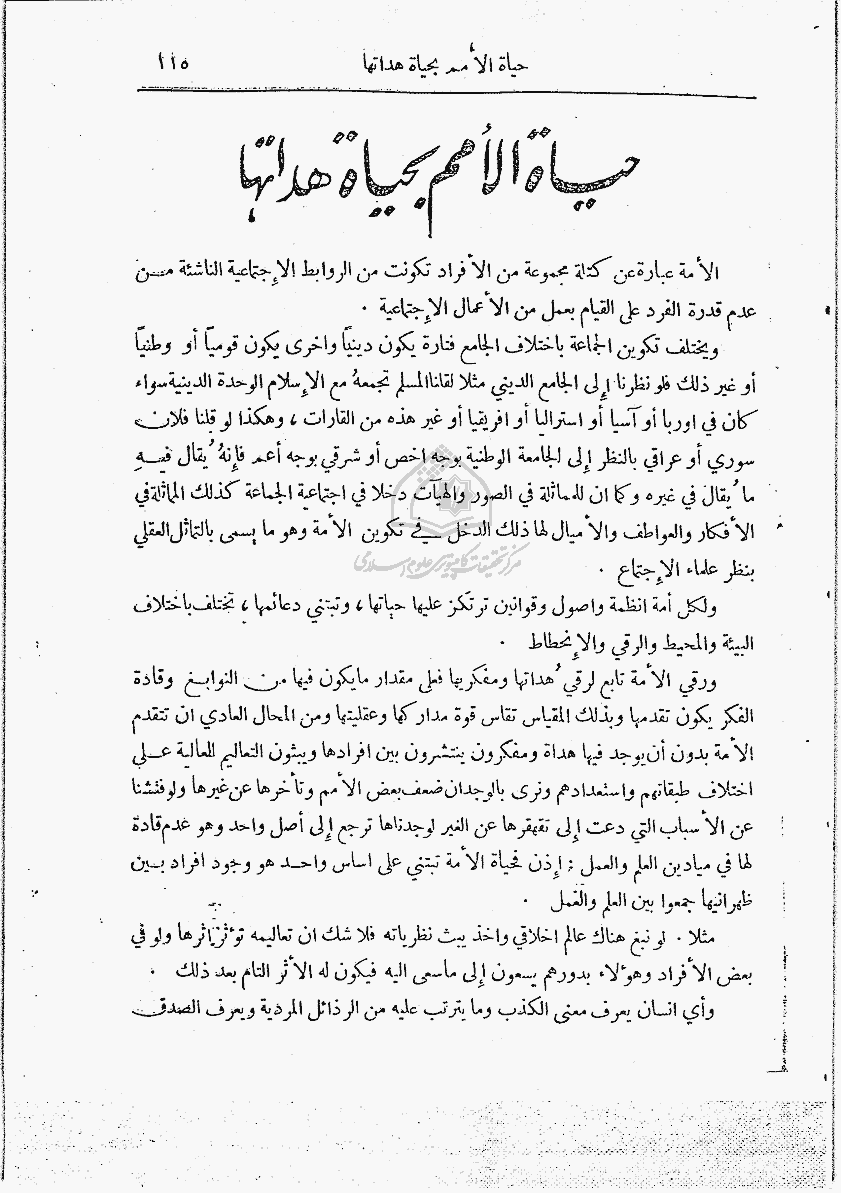 حياة الأمم بحياة هداتها ١١٥
حياة الأمم بحياة هداتها
الأمة عبارة عن كتلة مجموعة من الأفراد تكونت من الروابط الإجتماعية الناشئة من
عدم قدرة الفرد على القيام بعمل من الأعمال الإجتماعية .
ويختلف تكوين الجماعة باختلاف الجامع فتارة يكون دينياً واخرى يكون قومياً أو وطنياً
أو غير ذلك فلو نظرنا إلى الجامع الديني مثلا لقلنا المسلم تجمعهُ مع الإسلام الوحدة الدينية سواء
كان في اوربا أو آسيا أو استراليا أو افريقيا أو غير هذه من القارات ، وهكذا لو قلنا فلان
سوري أو عراقي بالنظر إلى الجامعة الوطنية بوجه اخص أو شرقي بوجه أعم فإنهُ يُقال فيهِ
ما يُقال في غيره وكما ان للمماثلة في الصور والهيآت دخلا في اجتماعية الجماعة كذلك المماثلة في
الأفكار والعواطف والأميال لها ذلك الدخل في تكوين الأمة وهو ما يسمى بالتماثل العقلي
مركز تحقيقات كامپيوتری علوم اسلامی
بنظر علماء الإجتماع .
ولكل أمة انظمة واصول وقوانين ترتكز عليها حياتها ، وتبتني دعائمها ، تختلف باختلاف
البيئة والمحيط والرقي والإنحطاط .
ورقي الأمة تابع لرقي هُداتها ومفكريها فعلى مقدار مايكون فيها من النوابغ وقادة
الفكر يكون تقدمها وبذلك المقياس تقاس قوة مداركها وعقليتها ومن المحال العادي ان تتقدم
الأمة بدون أن يوجد فيها هداة ومفكرون ينتشرون بين افرادها ويبثون التعاليم العالية على
اختلاف طبقاتهم واستعدادهم ونرى بالوجدان ضعف بعض الأمم وتأخرها عن غيرها ولو فتشنا
عن الأسباب التي دعت إلى تقهقرها عن الغير لوجدناها ترجع إلى أصل واحد وهو عدم قادة
لها في ميادين العلم والعمل ; إذن فحياة الأمة تبتني على اساس واحد هو وجود افراد بين
ظهرانيها جمعوا بين العلم والعمل .
مثلا . لو نبغ هناك عالم اخلاقي واخذ يبث نظرياته فلا شك ان تعاليمه تؤثر اثرها ولو في
بعض الأفراد وهؤلاء بدورهم يسعون إلى ماسعى اليه فيكون له الأثر التام بعد ذلك .
وأي انسان يعرف معنى الكذب وما يترتب عليه من الرذائل المردية ويعرف الصدق